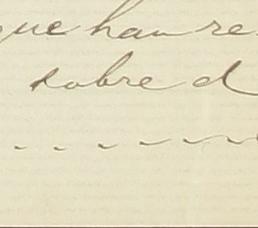 que han re
sobre d